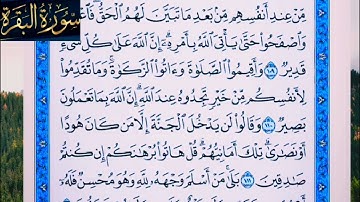 سُورَةُ البَقَرَة
مِّنْ عِندِ أَنفُسِهِم مِّنۢ بَعْدِ مَا تَبَيَّنَ لَهُمُ ٱلْحَقُّ
وَٱصْفَحُوا۟ حَتَّىٰ يَأْتِىَ ٱللَّهُ بِأَمْرِهِۦٓ إِنَّ ٱللَّهَ عَلَىٰ كُلِّ شَىْءٍ
قَدِيرٌ ١٠٩ وَأَقِيمُوا۟ ٱلصَّلَوٰةَ وَءَاتُوا۟ ٱلزَّكَوٰةَ وَمَا تُقَدِّمُوا۟
لِأَنفُسِكُم مِّنْ خَيْرٍ تَجِدُوهُ عِندَ ٱللَّهِ إِنَّ ٱللَّهَ بِمَا تَعْمَلُونَ
بَصِيرٌ ١١٠ وَقَالُوا۟ لَن يَدْخُلَ ٱلْجَنَّةَ إِلَّا مَن كَانَ هُودًا
أَوْ نَصَٰرَىٰ تِلْكَ أَمَانِيُّهُمْ قُلْ هَاتُوا۟ بُرْهَٰنَكُمْ إِن كُنتُمْ
صَٰدِقِينَ ١١١ بَلَىٰ مَنْ أَسْلَمَ وَجْهَهُۥ لِلَّهِ وَهُوَ مُحْسِنٌ فَلَهُۥٓ